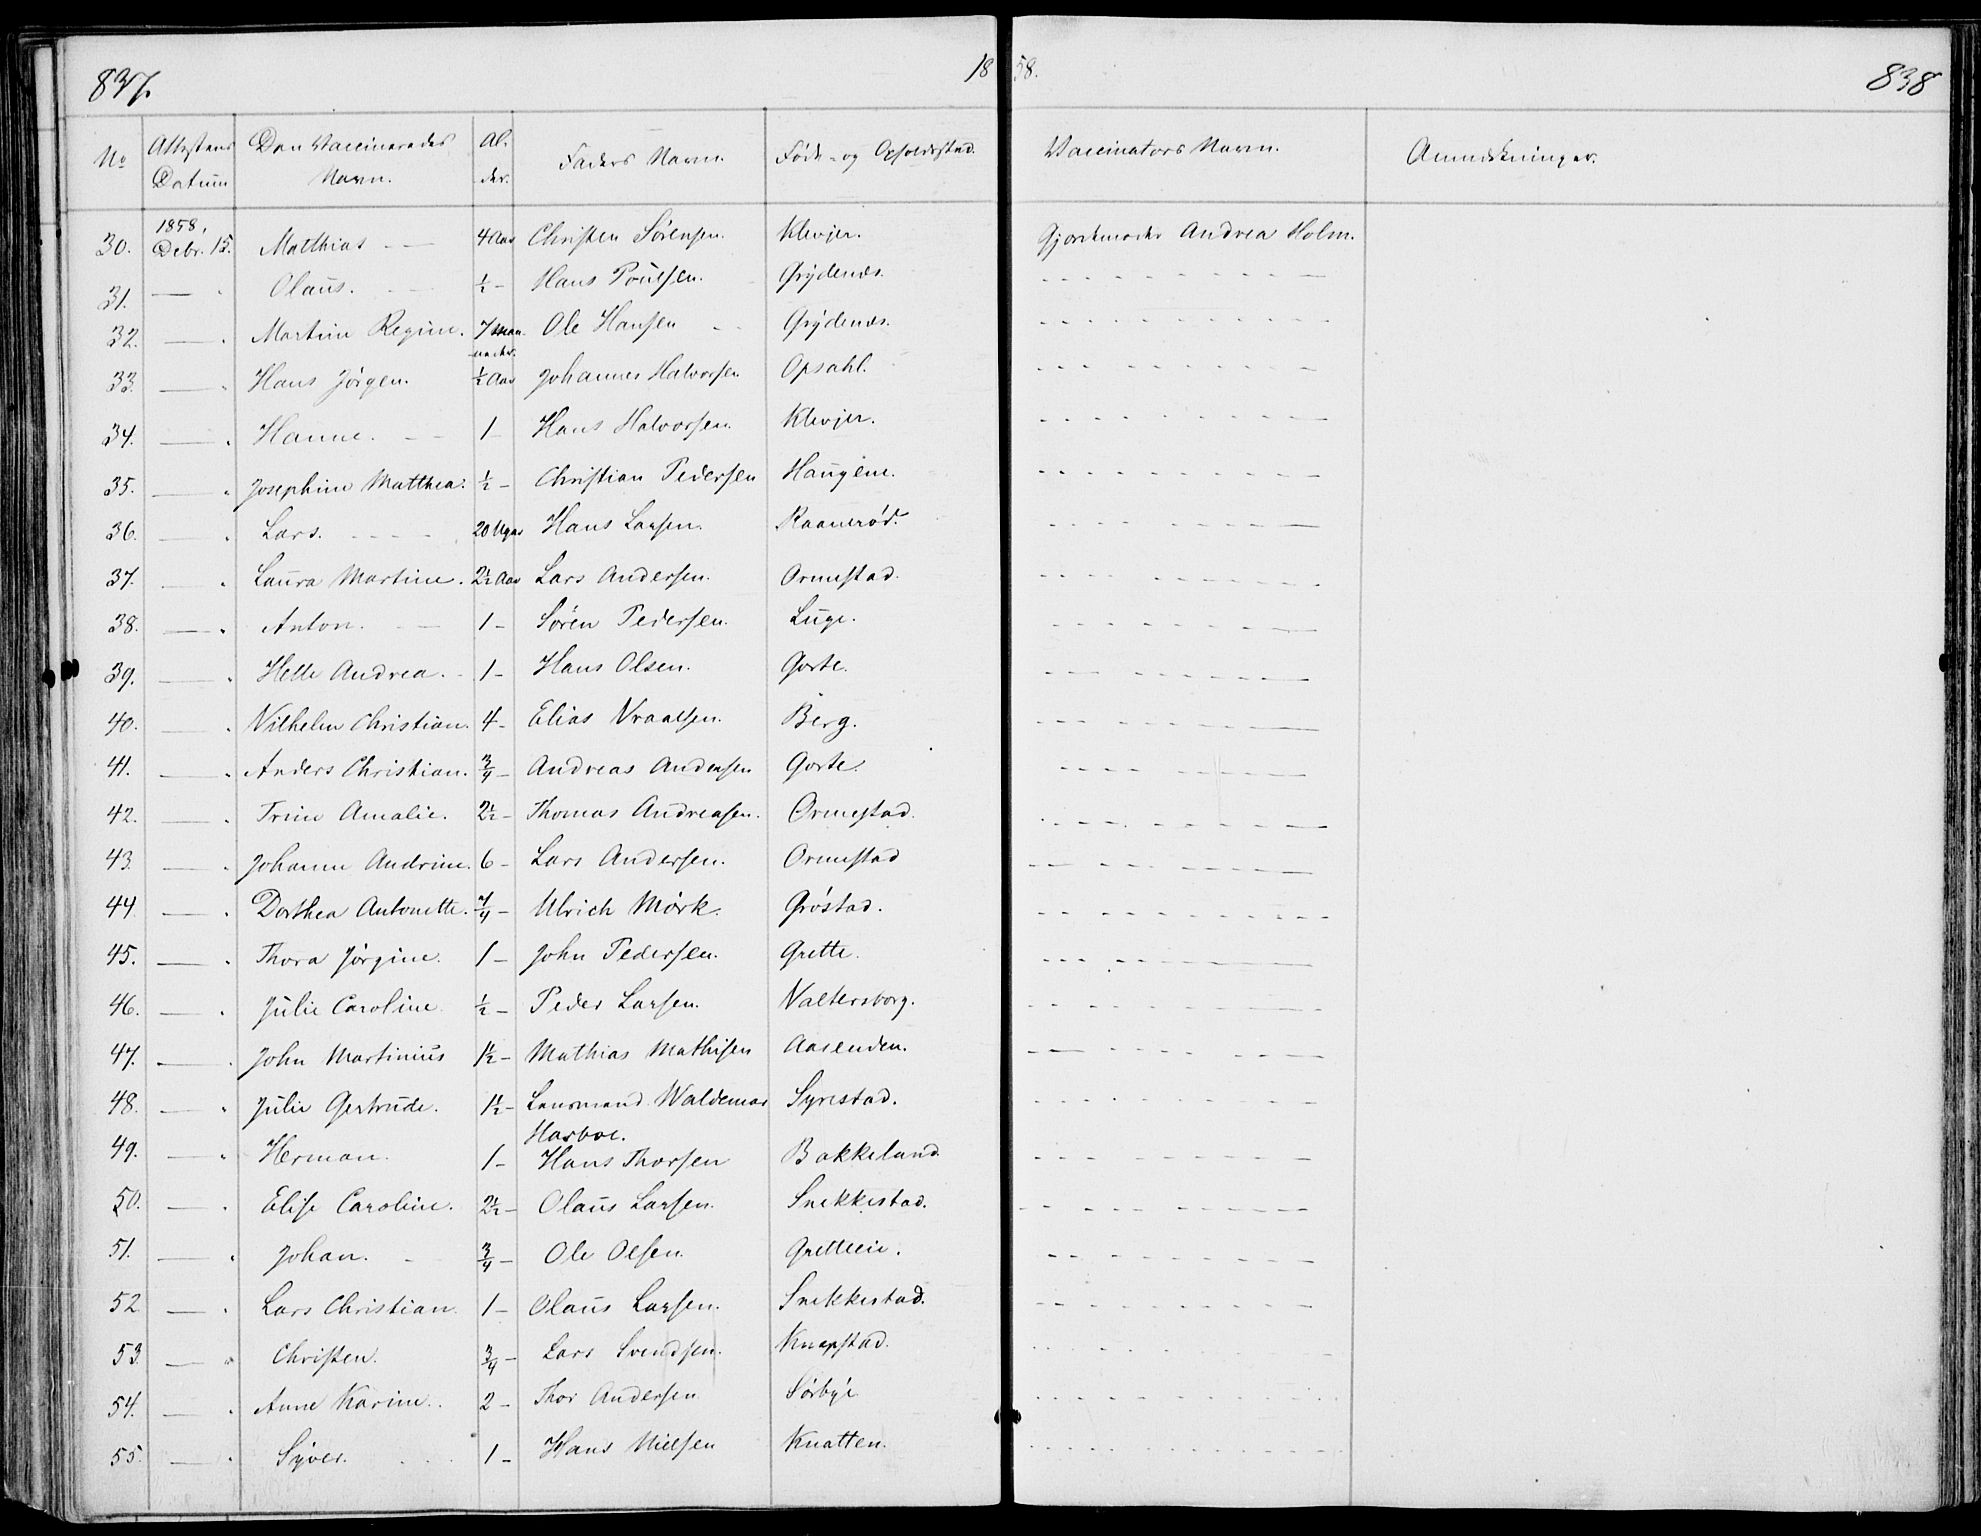 837.
18 58.
838
No
Attestens Datum
Den Vaccineredes Navn.
Alder.
Faders Navn.
Føde- og Opholdsstad.
Vaccinators Navn.
Anmærkninger.
30. 1858, Debr. 15. Matthias — 4 Aar Christen Sørensen. Klevjer. Gjordemoder Andrea Holm.
31. — " Olaus. ½ - Hans Poulsen. Grydenæs.
32. — " Martine Regine. 7 Maaneder. Ole Hansen Grydenæs.
33. — " Hans Jørgen. ½ Aar Johannes Halvorsen Opsahl.
34. — " Hanne. 1 - Hans Halvorsen. Klevjer.
35. — " Josephine Matthea. ½ - Christian Pedersen Haugene.
36. — " Lars. 20 Uger Hans Larsen. Raanerød.
37. — " Laura Martine. 2½ Aar Lars Andersen. Ormestad.
38. — " Anton. 1 - Søren Pedersen. Luge.
39. — " Helle Andrea. 1 - Hans Olsen. Gorte.
40. — " Vilhelm Christian. 4 - Elias Vraalsen. Berg.
41. — " Anders Christian. ¾ - Andreas Andersen Gorte.
42. — " Trine Amalie. 2½ - Thomas Andreasen. Ormestad.
43. — " Johanne Andrine. 6 - Lars Andersen. Ormestad
44. — " Dorthea Antonette. 7/4 - Ulrich Mörk. Gröstad.
45. — " Thora Jørgine. 1 - John Pedersen. Grette.
46. — " Julie Caroline. ½ - Peder Larsen. Valtersborg.
47. — " John Martinius 1½ - Mathias Mathisen Aasenden.
48. — " Julie Gertrude. 1½ - Lensmand Waldemar Hasboe. Syrestad.
49. — " Herman. 1 - Hans Thorsen Bakkeland.
50. — " Elise Caroline. 2½ - Olaus Larsen. Snekkestad.
51. — " Johan. ¾ - Ole Olsen. Gretteeie.
52. — " Lars Christian. 1 - Olaus Larsen. Snekkestad.
53. — " Christen. ¾ - Lars Svendsen. Knapstad.
54. — " Anne Karine. 2 - Thor Andersen Sørbye
55. — " Syver. 1 - Hans Nielsen Knatten.